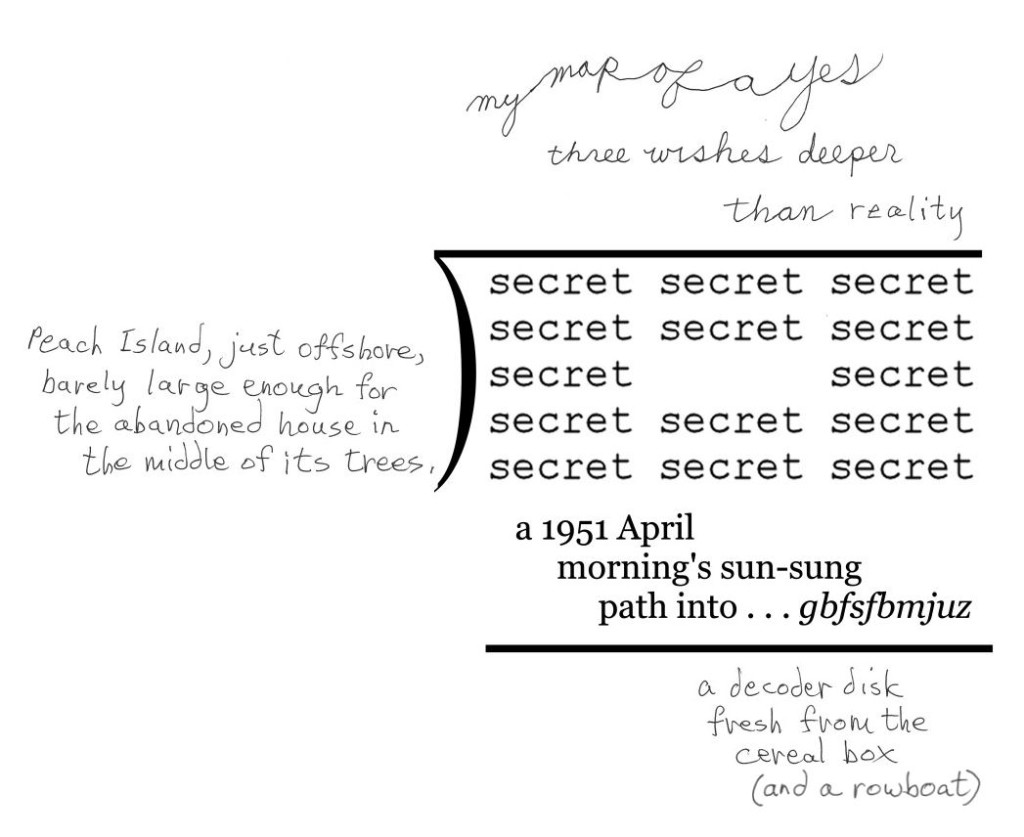 my map of a yes
three wishes deeper
than reality
secret secret secret
secret secret secret
secret secret
secret secret secret
secret secret secret
Peach Island, just offshore,
barely large enough for
the abandoned house in
the middle of its trees.
a 1951 April
morning's sun-sung
path into . . . gbfsfbmjuz
a decoder disk
fresh from the
cereal box
(and a rowboat)